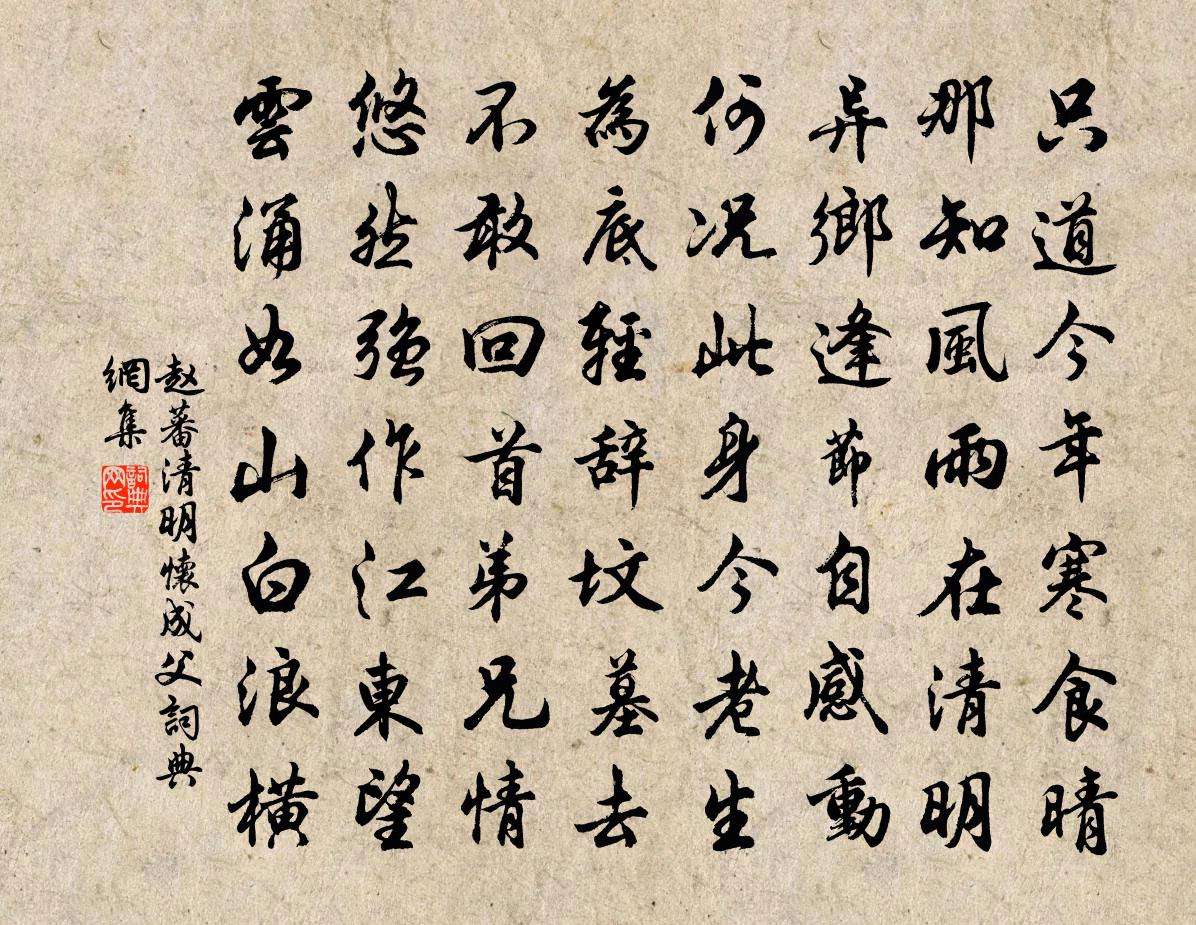 只道今年寒食晴
那知風雨在清明
异鄉逢節自感動
何况此身今老生
為底輕辞坟墓去
不敢回首弟兄情
悠然强作江東望
雲涌如山白浪橫
赵蕃清明懷成父詞典
網集
詞典
网印